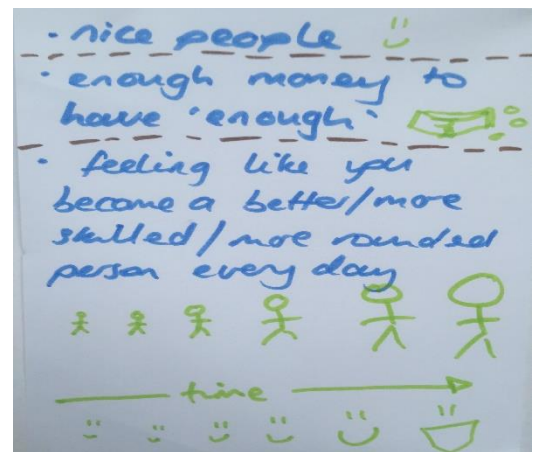 • nice people
• enough money to
have 'enough'
• feeling like you
become a better/more
skilled/more rounded
person every day
time